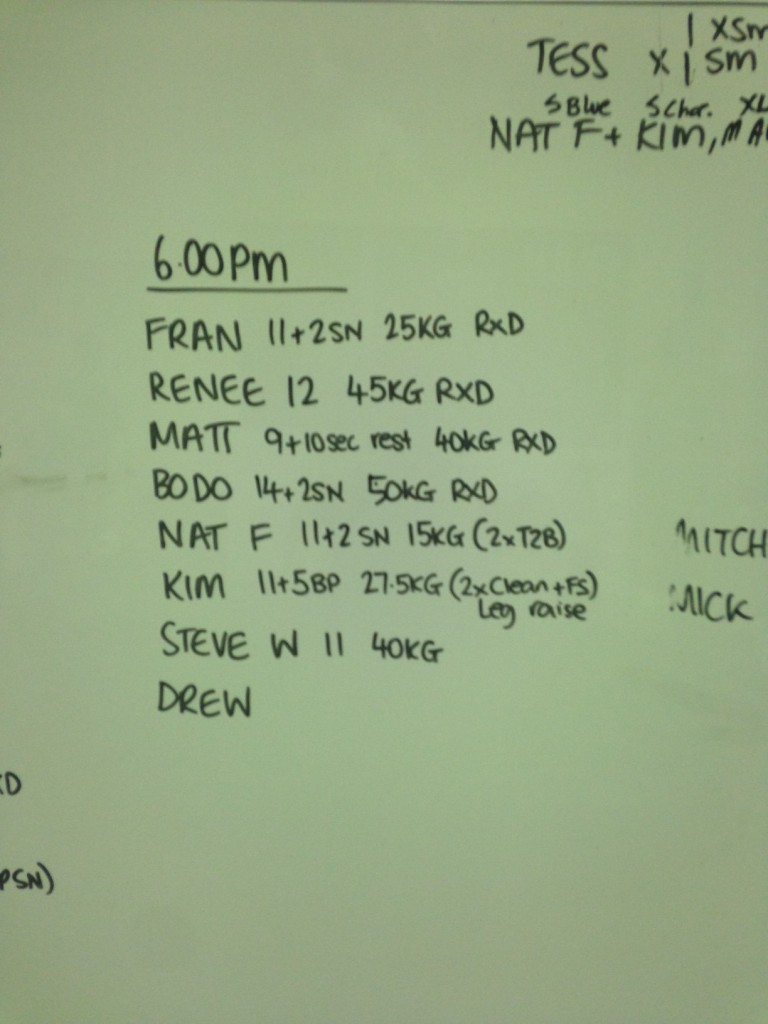 1 XSm
TESS X 1 Sm
S Blue S Char. XL
NAT F + KIM,
6.00pm
FRAN 11+2SN 25KG RXD
RENEE 12 45KG RXD
MATT 9+10sec rest 40KG RXD
BODO 14+2SN 50KG RXD
NAT F 11+2SN 15KG (2xT2B)
MITCH
KIM 11+5BP 27.5KG (2xClean+FS)
Leg raise
MICK
STEVE W 11 40KG
DREW
PSN)